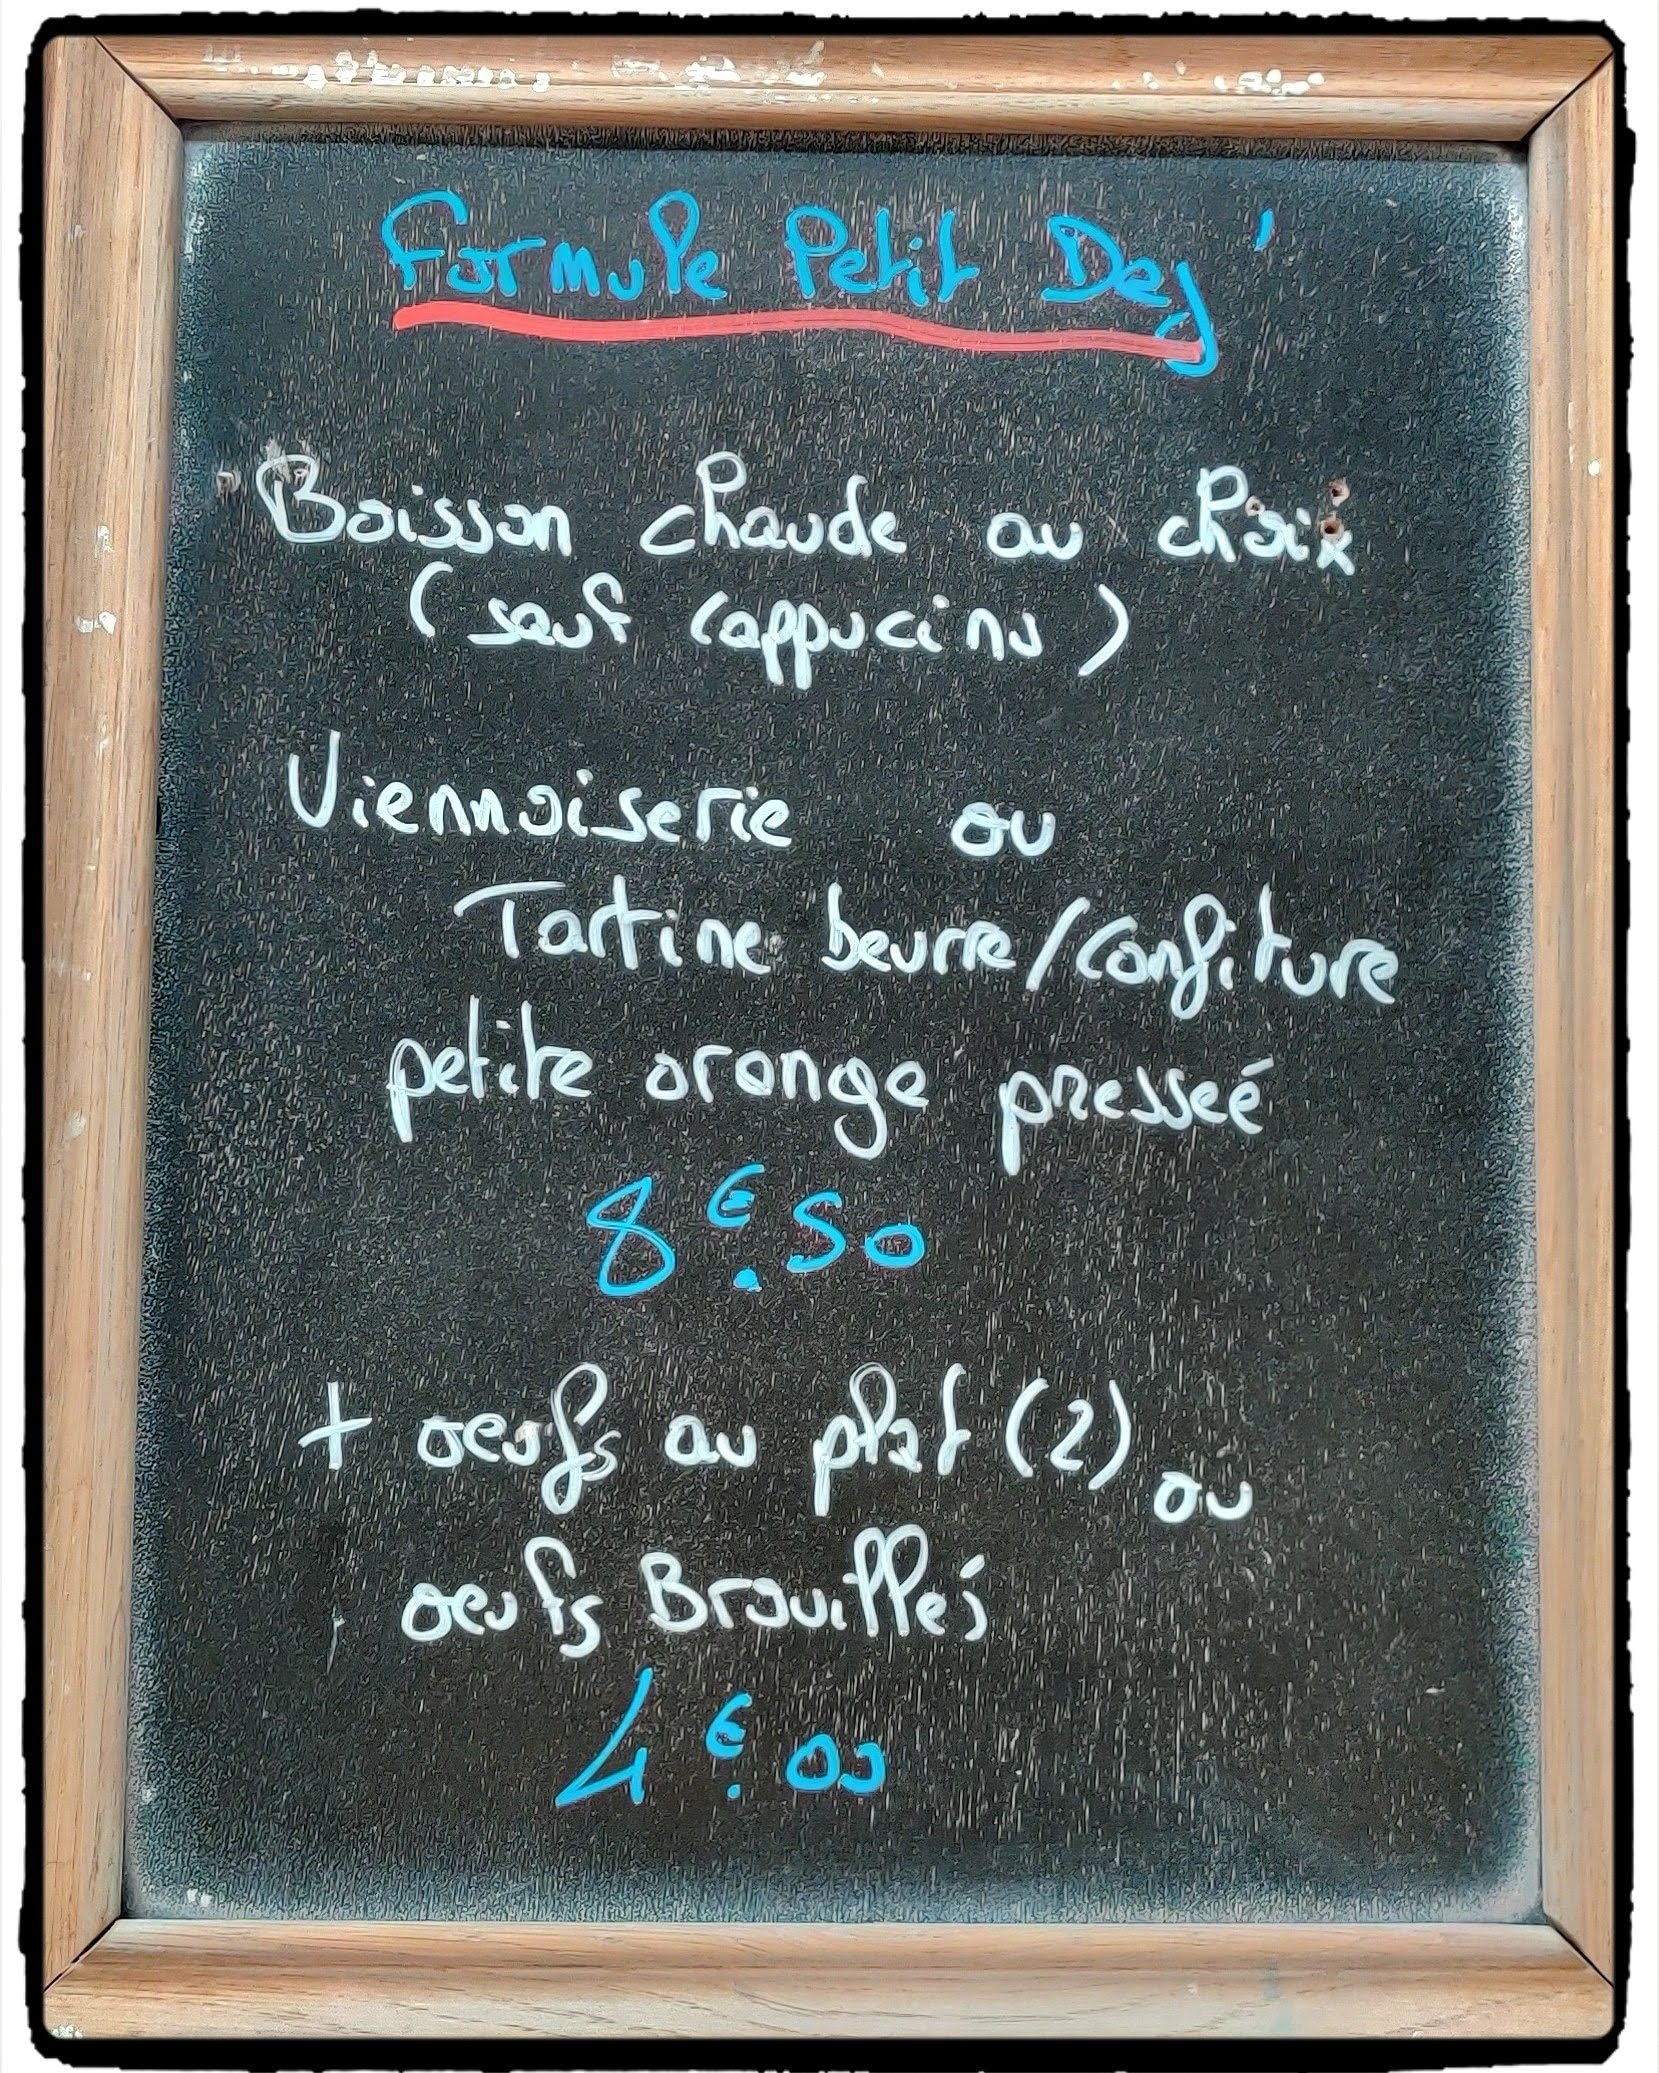 Formule Petit Dej'
Boisson chaude au choix
(sauf cappucino)
Viennoiserie ou
Tartine beurre/confiture
petite orange presseé
8€.50
+ oeufs au plat (2) ou
oeufs Brouillés
4€.00